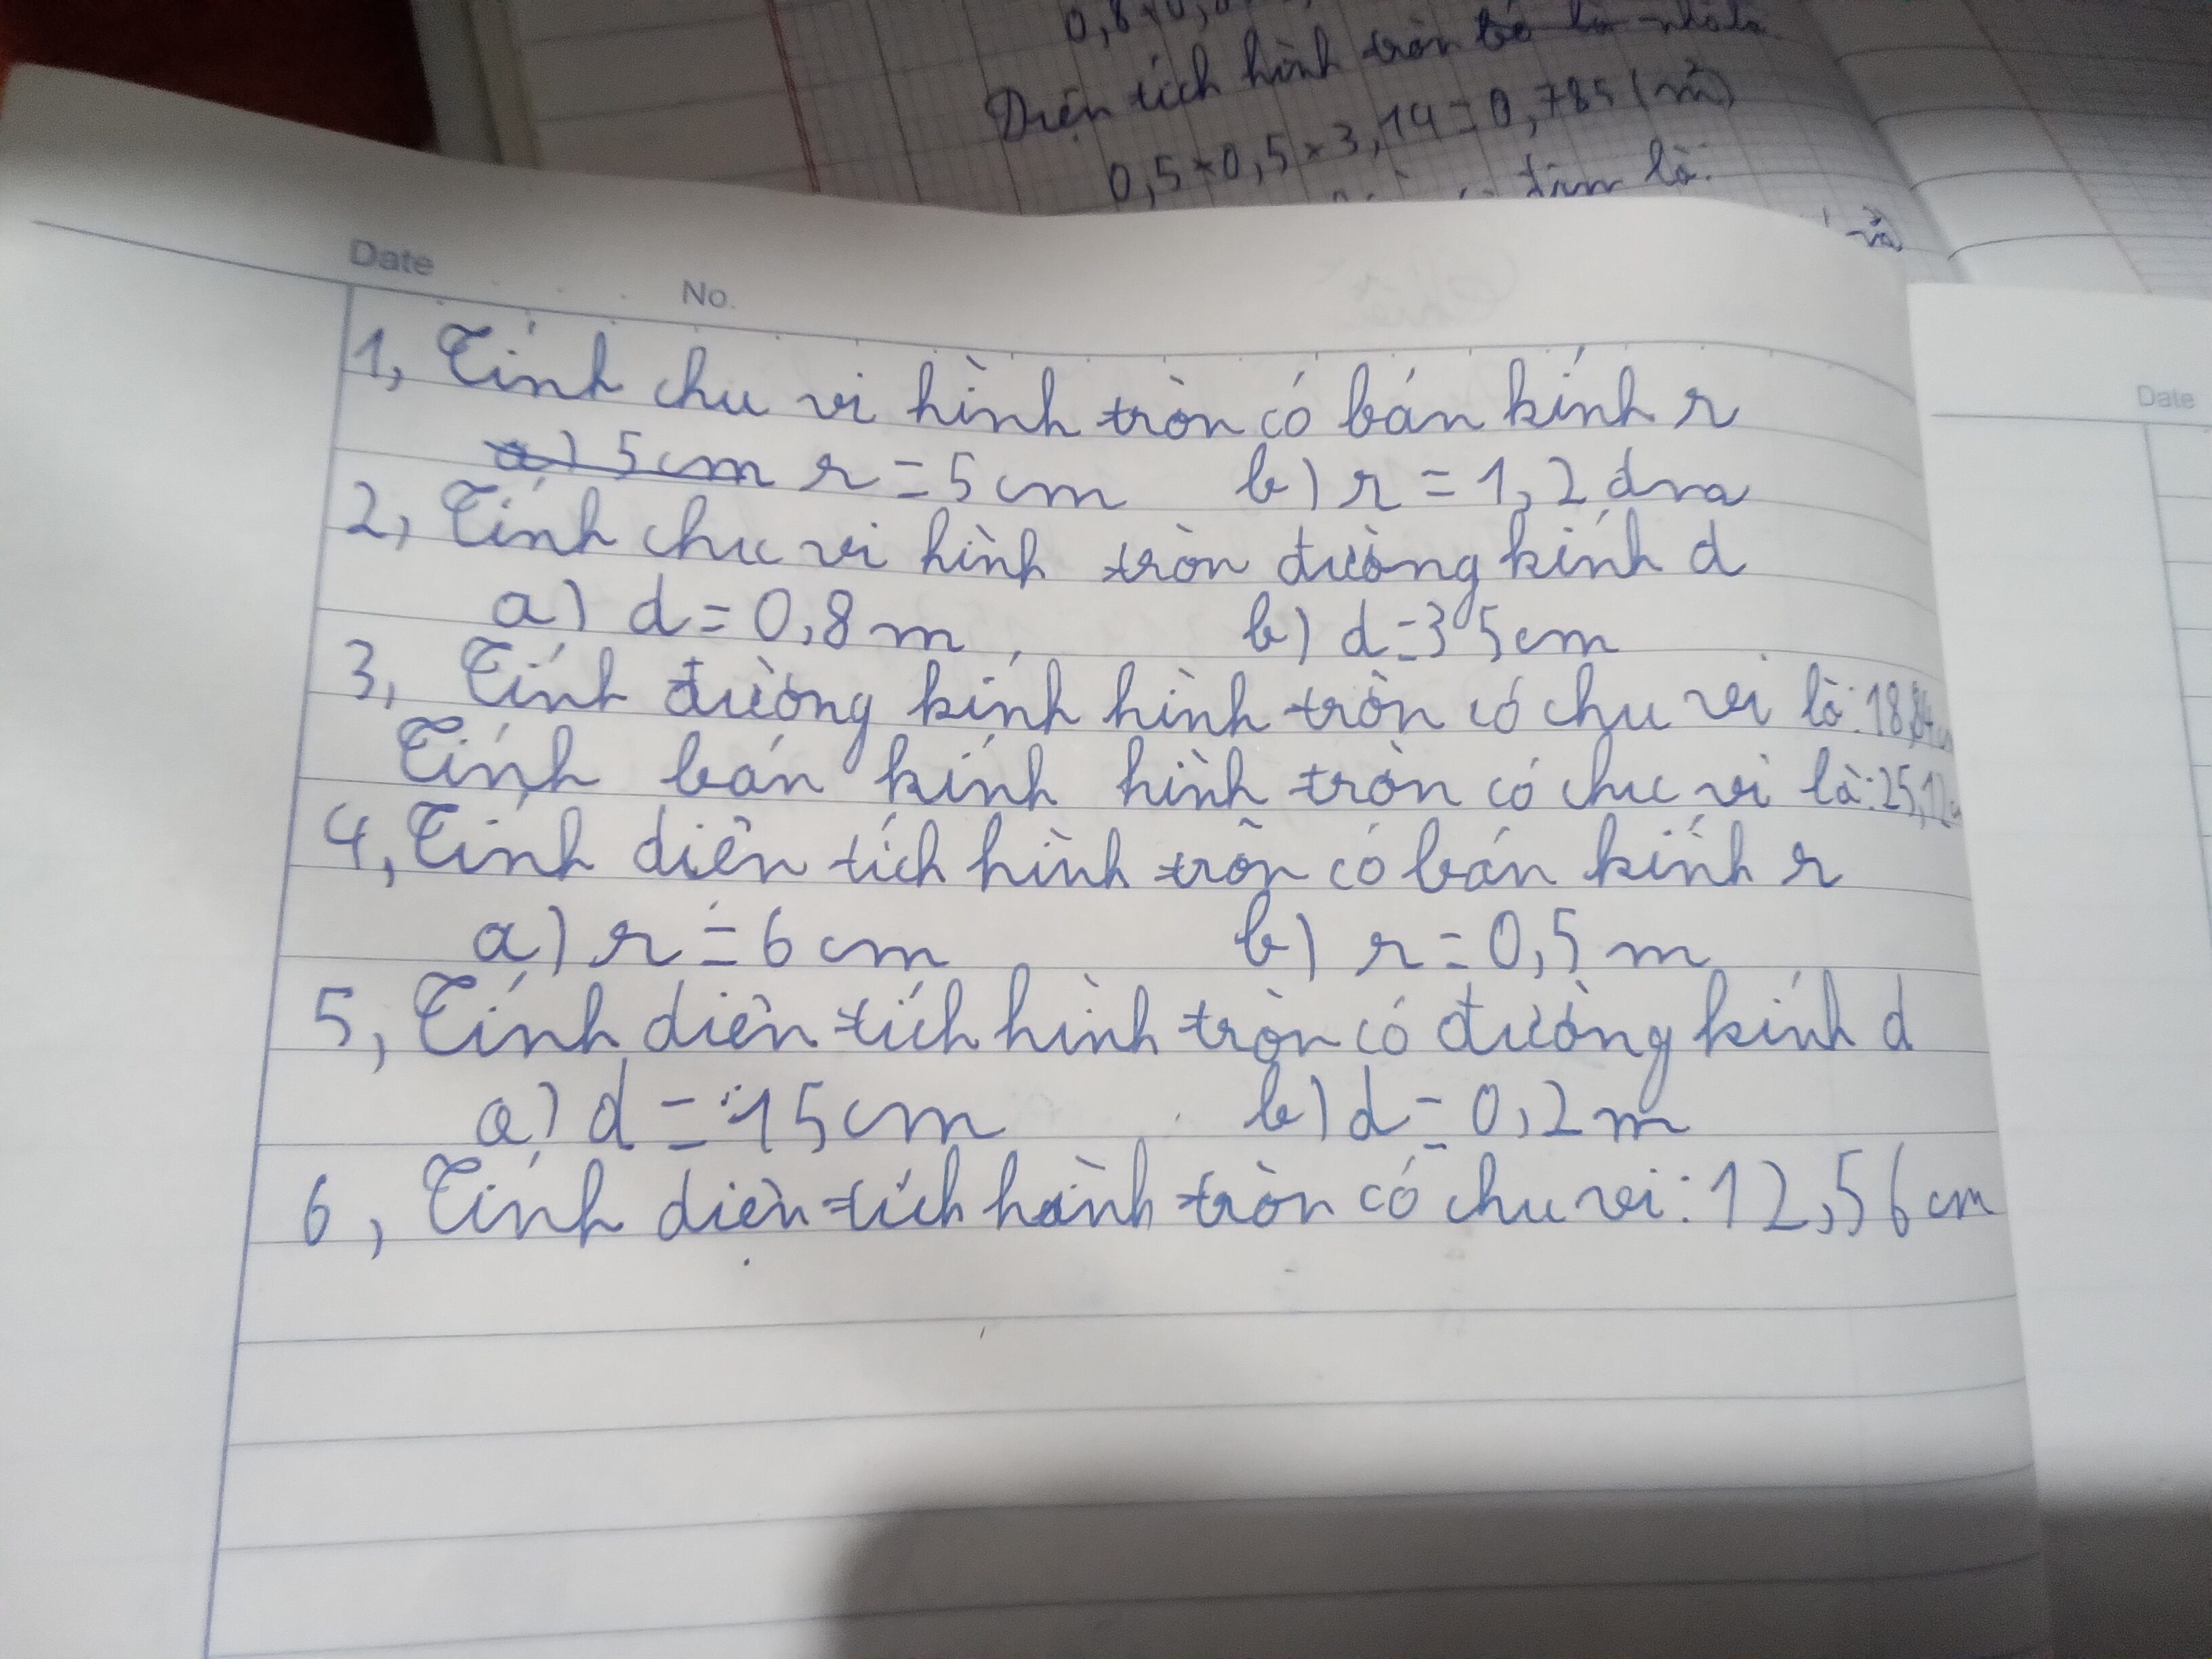 Diện tích hình tròn bé là
0,5×0,5×3,14=0,785(m²)
là:
Date
No.
Date
1, Tính chu vi hình tròn có bán kính r
a) 5cm r=5cm b) r=1,2dm
2, Tính chu vi hình tròn đường kính d
a) d=0,8m b) d=35cm
3, Tính đường kính hình tròn có chu vi là: 18,84
Tính bán kính hình tròn có chu vi là: 25,12
4, Tính diện tích hình tròn có bán kính r
a) r=6cm b) r=0,5m
5, Tính diện tích hình tròn có đường kính d
a) d=15cm b) d=0,2m
6, Tính diện tích hành tròn có chu vi: 12,56cm